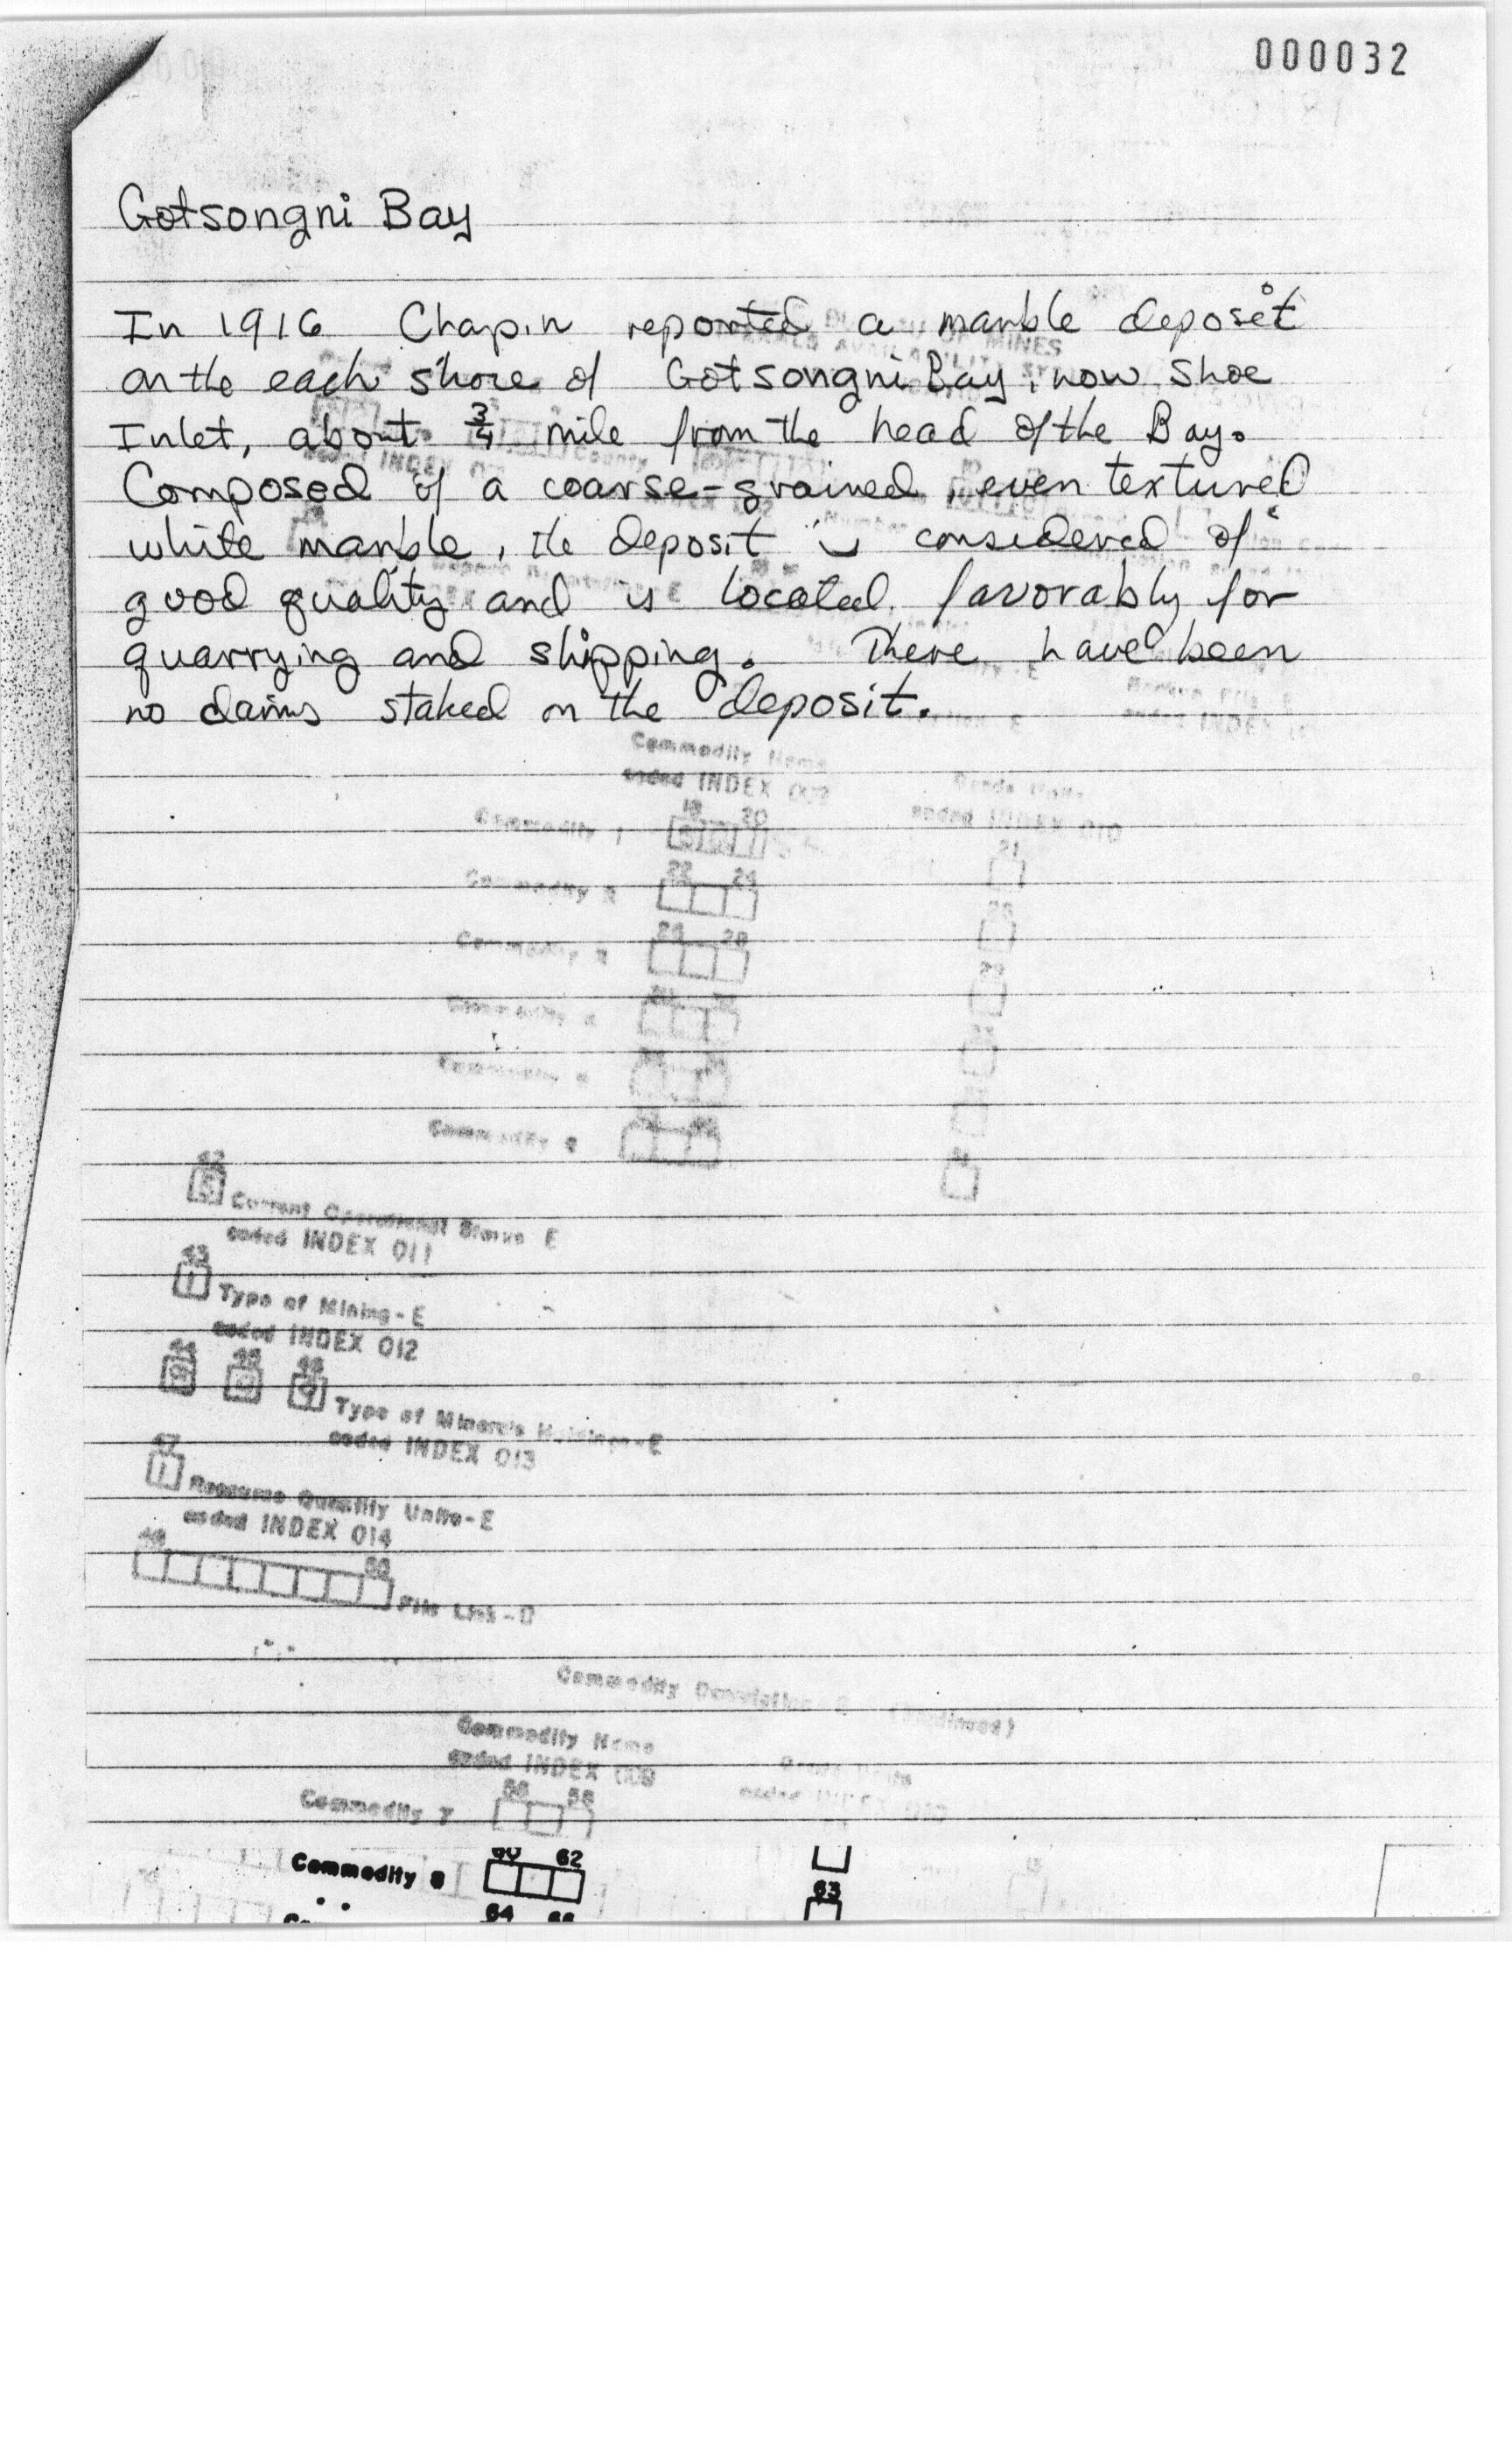 000032
Gotsongni Bay
In 1916 Chapin reported a marble deposit
on the each shore of Gotsongni Bay, now Shoe
Inlet, about 3/4 mile from the head of the Bay.
Composed of a coarse-grained, even textured
white marble, the deposit is considered of
good quality and is located favorably for
quarrying and shipping. There have been
no claims staked on the deposit.
Commodity Name
coded INDEX 009
coded INDEX 010
18 20
Commodity 1
21
Commodity 2
Commodity
Commodity
Commodity
Commodity
Current Operational Status E
coded INDEX 011
43
Type of Mining-E
coded INDEX 012
44 45 46
Type of Minerals Holdings-E
coded INDEX 013
47
Resource Quantity Units-E
coded INDEX 014
File Link-D
Commodity Description E (continued)
Commodity Name
coded INDEX 009
56 58
Commodity 7
60 62
Commodity 8
63
64 66